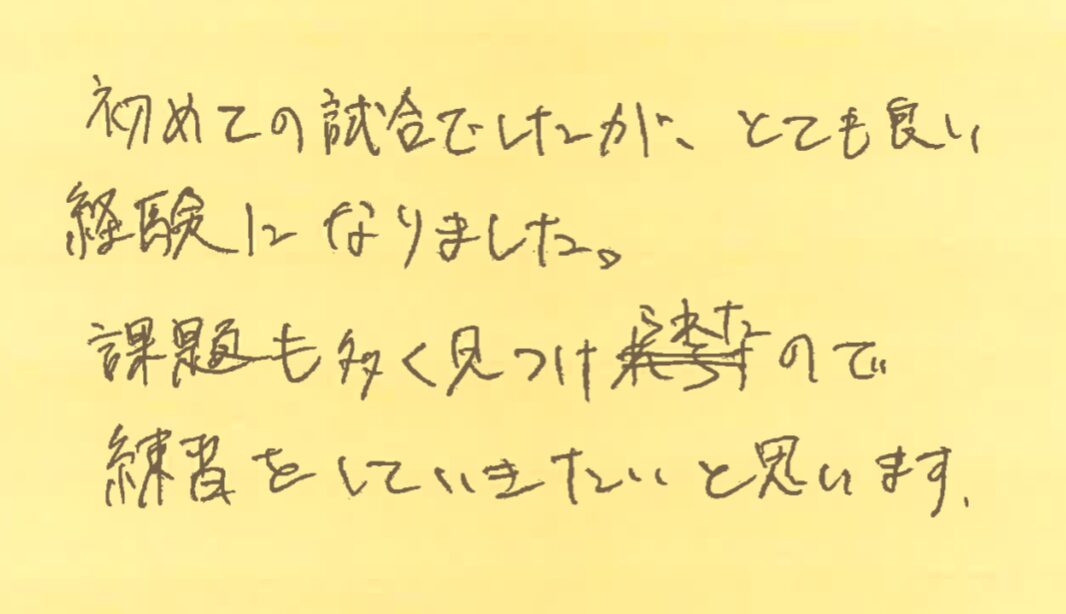 初めての試合でしたが、とても良い
経験になりました。
課題も多く見つけられたので
練習をしていきたいと思います.